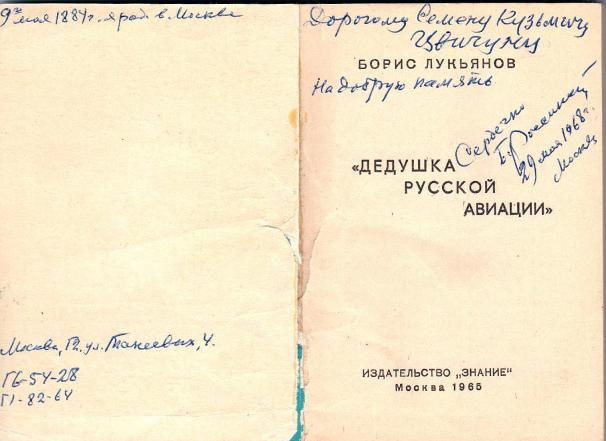 9го мая 1884 г. я род. в. Москве
Москва, Г2. ул. Танеевых, 4.
Г6-54-28
Г1-82-64
Дорогому Семену Кузьмичу
Цвичуну
БОРИС ЛУКЬЯНОВ
На добрую память
Сердечно
Б. Россинский
29 мая 1968 г.
Москва
«ДЕДУШКА
РУССКОЙ
АВИАЦИИ»
ИЗДАТЕЛЬСТВО „ЗНАНИЕ"
Москва 1965